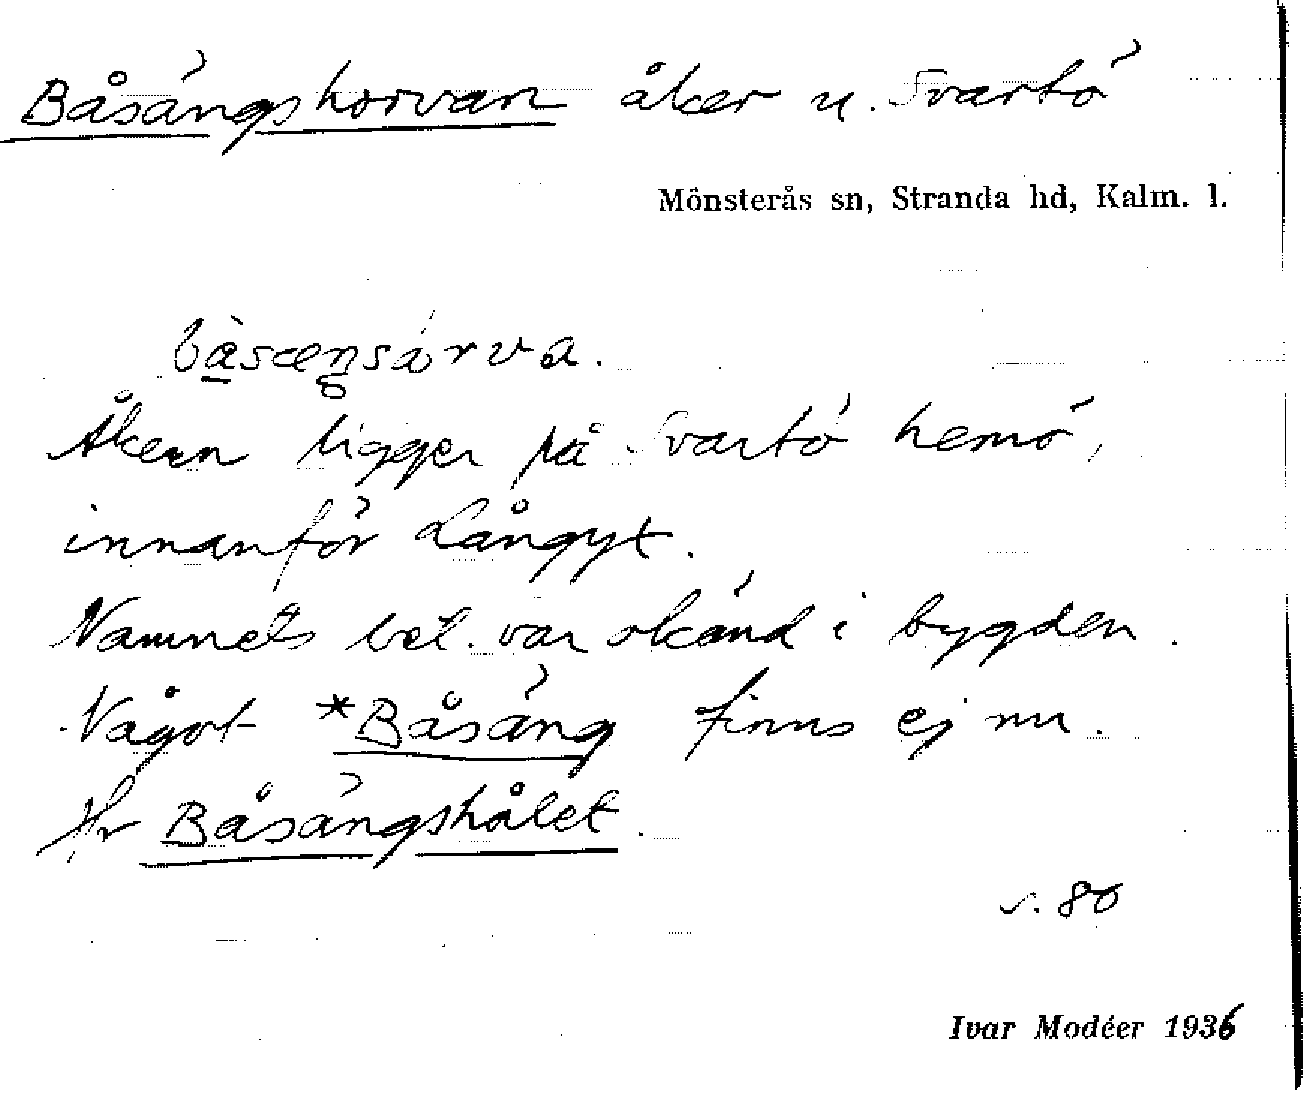 Båsängshorvan åker u. Svartö
Mönsterås sn, Stranda hd, Kalm. l.
båsæŋsårva.
Åkern ligger på Svartö hemö,
innanför Långyt.
Namnets bet. var okänd i bygden.
Något *Båsäng finns ej nu.
Jfr Båsängshålet.
s. 80
Ivar Modéer 1936